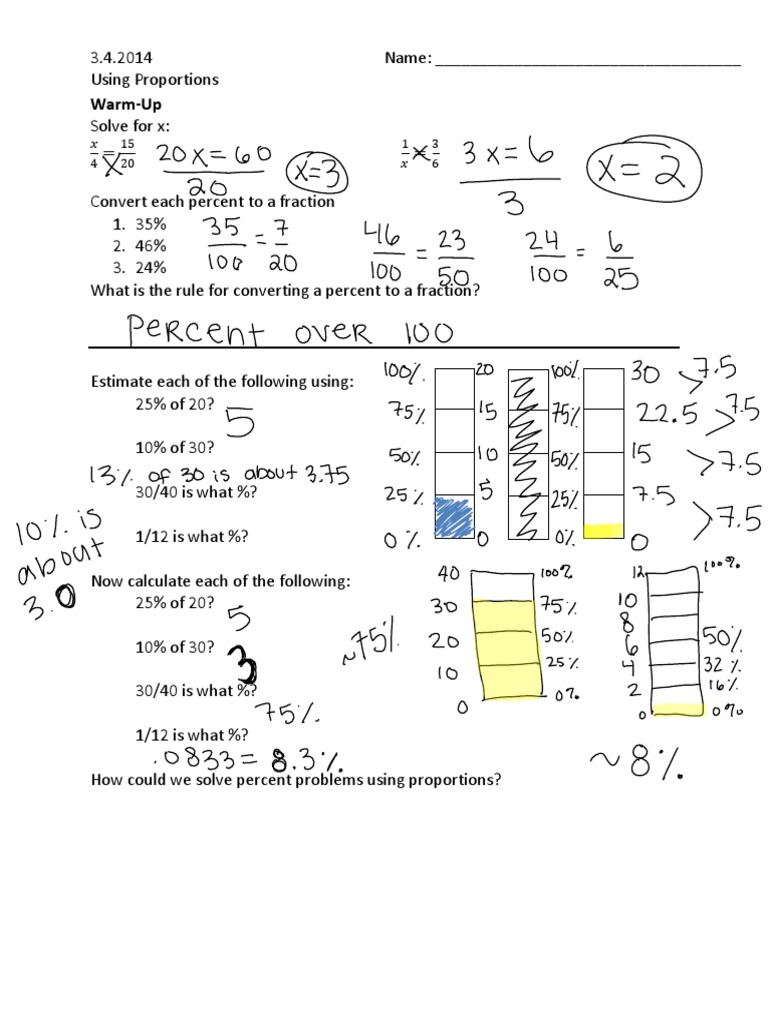 3.4.2014 Name: ___________________________________
Using Proportions
Warm-Up
Solve for x:
x/4 = 15/20 20x = 60 / 20 x=3 1/x = 3/6 3x = 6 / 3 x = 2
Convert each percent to a fraction
1. 35% 35/100 = 7/20
2. 46% 46/100 = 23/50
3. 24% 24/100 = 6/25
What is the rule for converting a percent to a fraction?
Percent over 100
Estimate each of the following using:
25% of 20? 5
10% of 30?
13% of 30 is about 3.75
30/40 is what %?
1/12 is what %?
10% is
about
3.0
100% 20 100% 30 > 7.5
75% 15 75% 22.5 > 7.5
50% 10 50% 15 > 7.5
25% 5 25% 7.5 > 7.5
0% 0 0% 0
Now calculate each of the following:
25% of 20? 5
10% of 30? 3
30/40 is what %?
75%
1/12 is what %?
.0833 = 8.3%
~75%
40 100%
30 75%
20 50%
10 25%
0 0%
12 100%
10
8
6 50%
4 32%
2 16%
0 0%
~8%
How could we solve percent problems using proportions?